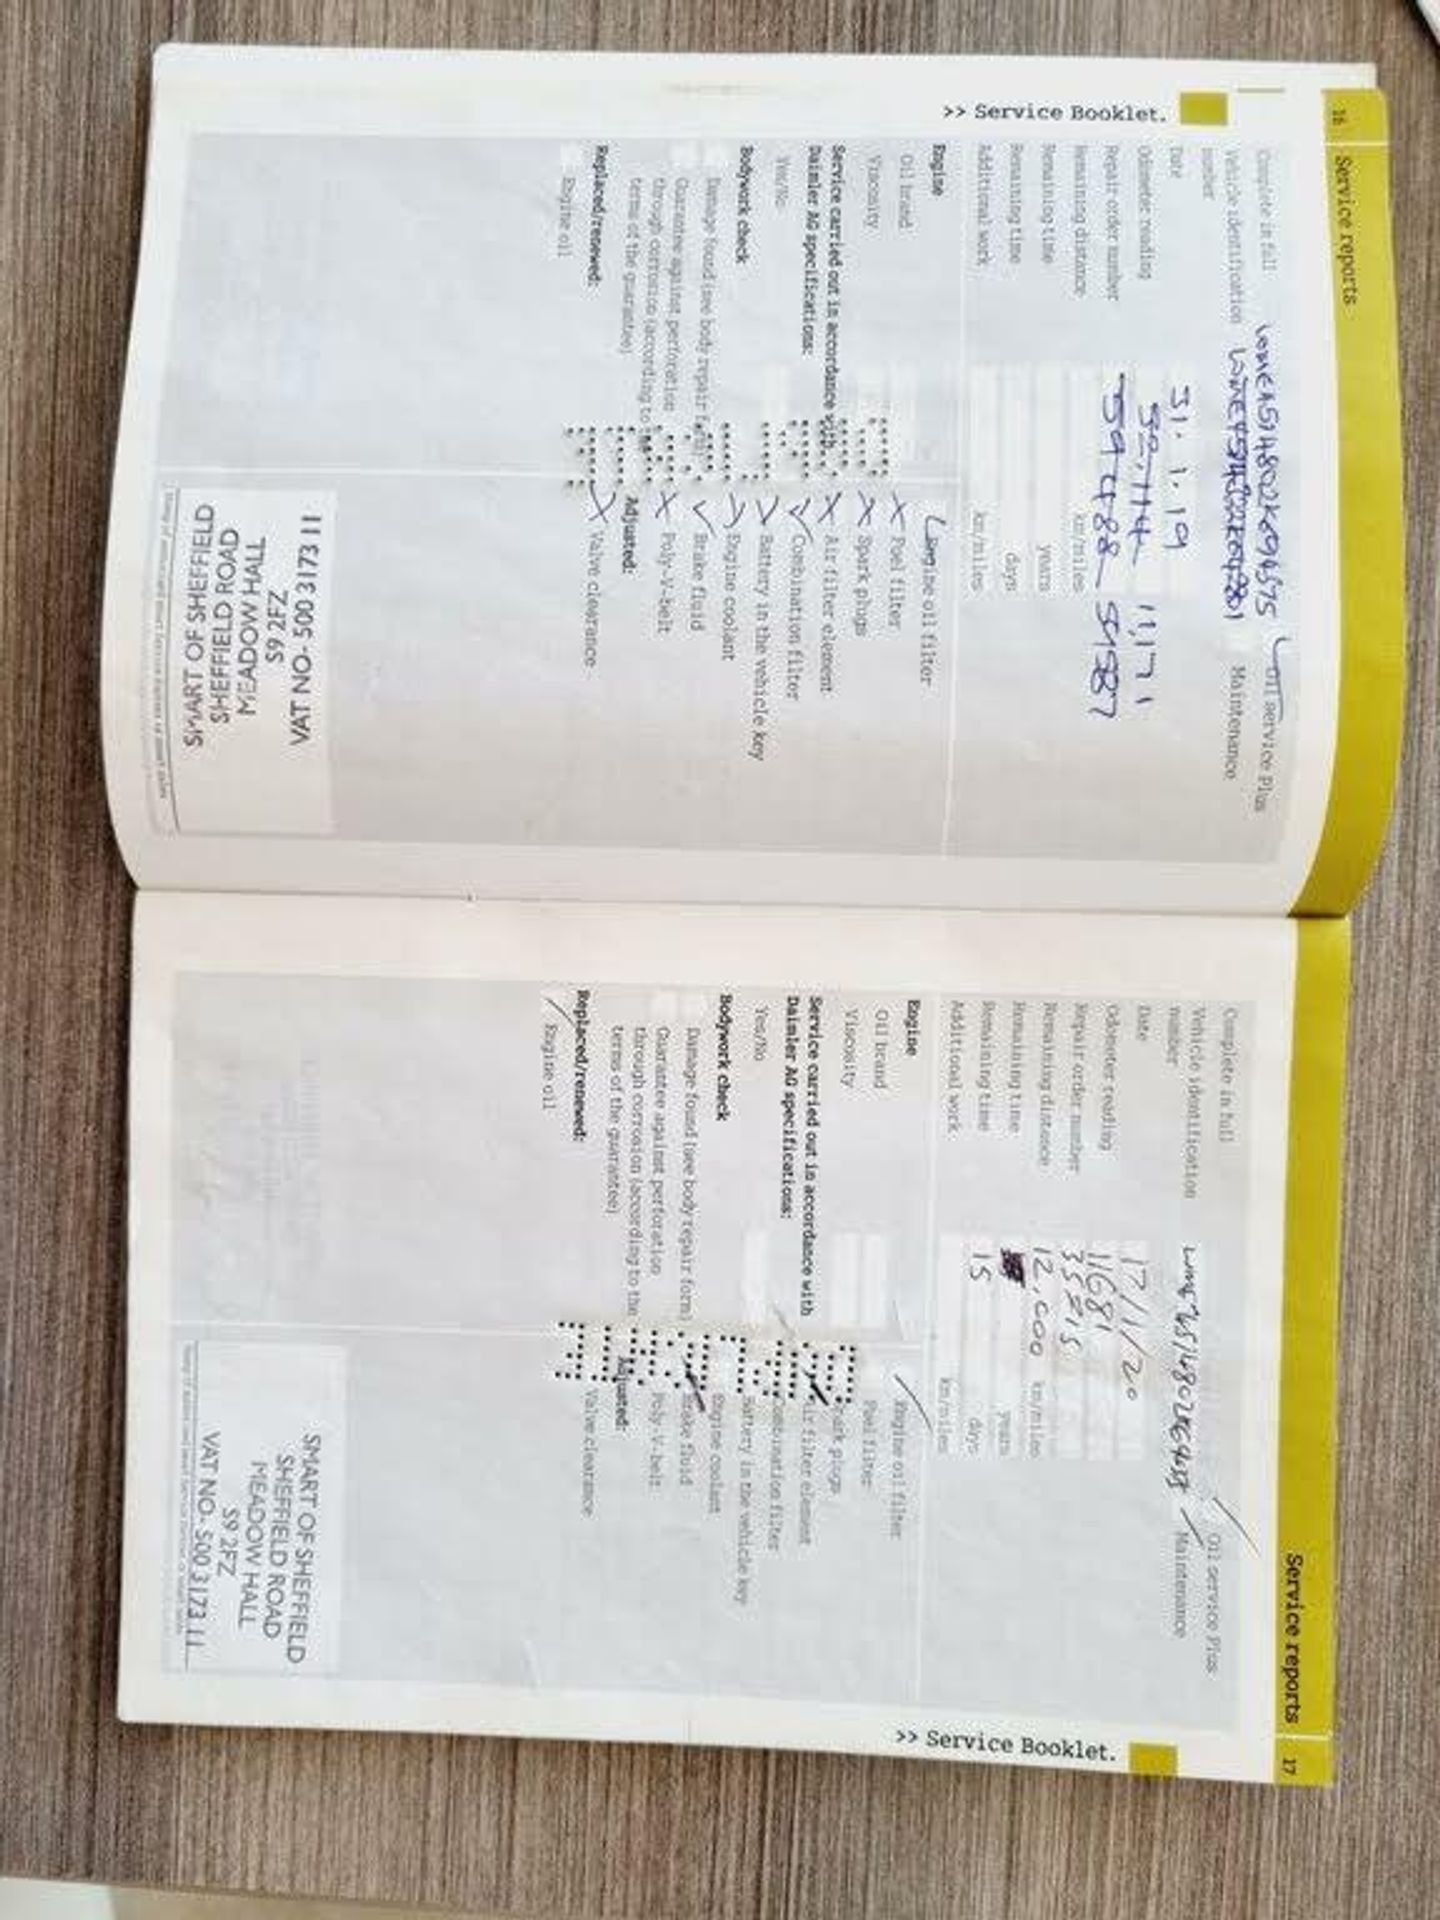 16 Service reports
Complete in full
WME4514802K694575 Oil service Plus
Vehicle identification
number
Maintenance
Date 31.1.19
Odometer reading 11,171
Repair order number 59488 51587
Remaining distance km/miles
Remaining time years
Remaining time days
Additional work km/miles
Engine
Oil brand
Viscosity
Service carried out in accordance with
Daimler AG specifications:
Yes/No
Bodywork check
Damage found (see body repair form)
Guarantee against perforation
through corrosion (according to the
terms of the guarantee)
Replaced/renewed:
Engine oil
Engine oil filter
X Fuel filter
X Spark plugs
X Air filter element
✓ Combination filter
Battery in the vehicle key
Engine coolant
✓ Brake fluid
X Poly-V-belt
Adjusted:
X Valve clearance
VAT NO- 500 3173 11
S9 2FZ
MEADOW HALL
SHEFFIELD ROAD
SMART OF SHEFFIELD
>> Service Booklet.
Service reports 17
Complete in full
Oil service Plus
Vehicle identification
number
Maintenance
Date 17/1/20
Odometer reading 11681
Repair order number
Remaining distance 12,000 km/miles
Remaining time years
Remaining time 15 days
Additional work km/miles
Engine
Oil brand
Viscosity
Service carried out in accordance with
Daimler AG specifications:
Yes/No
Bodywork check
Damage found (see body repair form)
Guarantee against perforation
through corrosion (according to the
terms of the guarantee)
Replaced/renewed:
Engine oil
Engine oil filter
Fuel filter
Spark plugs
Air filter element
Combination filter
Battery in the vehicle key
Engine coolant
Brake fluid
Poly-V-belt
Adjusted:
Valve clearance
SMART OF SHEFFIELD
SHEFFIELD ROAD
MEADOW HALL
S9 2FZ
VAT NO- 500 3173 11
>> Service Booklet.